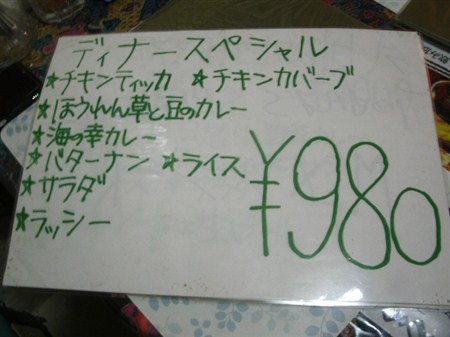 ディナースペシャル
★チキンティッカ ★チキンカバーブ
★ほうれん草と豆のカレー
★海の幸カレー
★バターナン ★ライス
★サラダ
★ラッシー
¥980